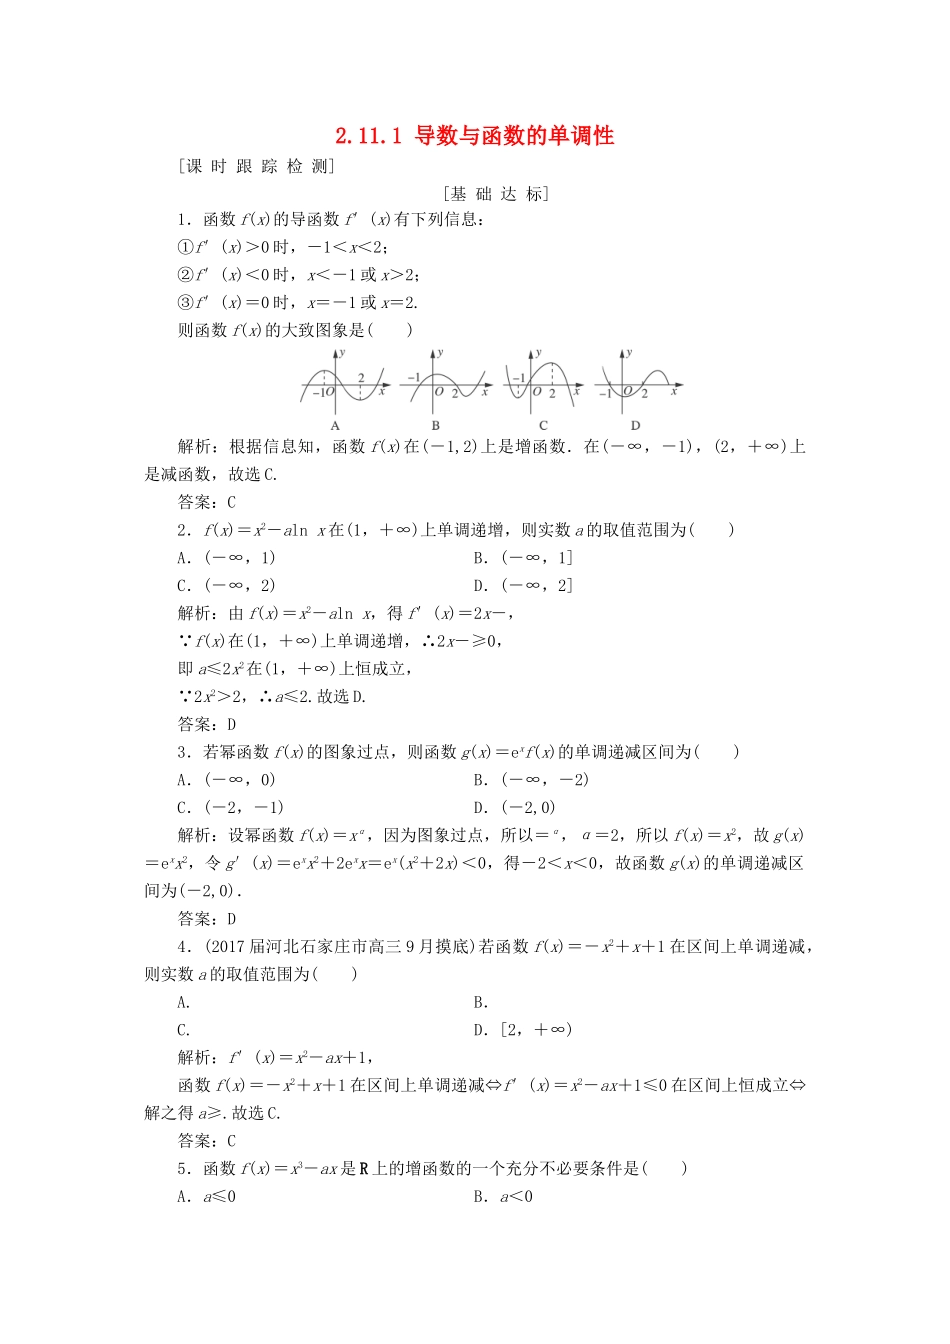 2.11.1 导数与函数的单调性
[课 时 跟 踪 检 测]
[基 础 达 标]
1．函数 f(x)的导函数 f′(x)有下列信息：
①f′(x)＞0 时，－1＜x＜2；
②f′(x)＜0 时，x＜－1 或 x＞2；
③f′(x)＝0 时，x＝－1 或 x＝2.
则函数 f(x)的大致图象是(　　)
y y y y
－1 O 2 x －1 O 2 x －1 O 2 x －1 O 2 x
A B C D
解析：根据信息知，函数 f(x)在(－1,2)上是增函数．在(－∞，－1)，(2，＋∞)上
是减函数，故选 C.
答案：C
2．f(x)＝x²－aln x 在(1，＋∞)上单调递增，则实数 a 的取值范围为(　　)
A．(－∞，1) B．(－∞，1]
C．(－∞，2) D．(－∞，2]
解析：由 f(x)＝x²－aln x，得 f′(x)＝2x－，
∵f(x)在(1，＋∞)上单调递增，∴2x－≥0，
即 a≤2x²在(1，＋∞)上恒成立，
∵2x²＞2，∴a≤2.故选 D.
答案：D
3．若幂函数 f(x)的图象过点，则函数 g(x)＝eˣf(x)的单调递减区间为(　　)
A．(－∞，0) B．(－∞，－2)
C．(－2，－1) D．(－2,0)
解析：设幂函数 f(x)＝xᵅ，因为图象过点，所以＝ᵅ，α＝2，所以 f(x)＝x²，故 g(x)
＝eˣx²，令 g′(x)＝eˣx²＋2eˣx＝eˣ(x²＋2x)＜0，得－2＜x＜0，故函数 g(x)的单调递减区
间为(－2,0)．
答案：D
4．(2017 届河北石家庄市高三 9 月摸底)若函数 f(x)＝－x²＋x＋1 在区间上单调递减，
则实数 a 的取值范围为(　　)
A. B．
C. D．[2，＋∞)
解析：f′(x)＝x²－ax＋1，
函数 f(x)＝－x²＋x＋1 在区间上单调递减⇔f′(x)＝x²－ax＋1≤0 在区间上恒成立⇔
解之得 a≥.故选 C.
答案：C
5．函数 f(x)＝x³－ax 是 R 上的增函数的一个充分不必要条件是(　　)
A．a≤0 B．a＜0